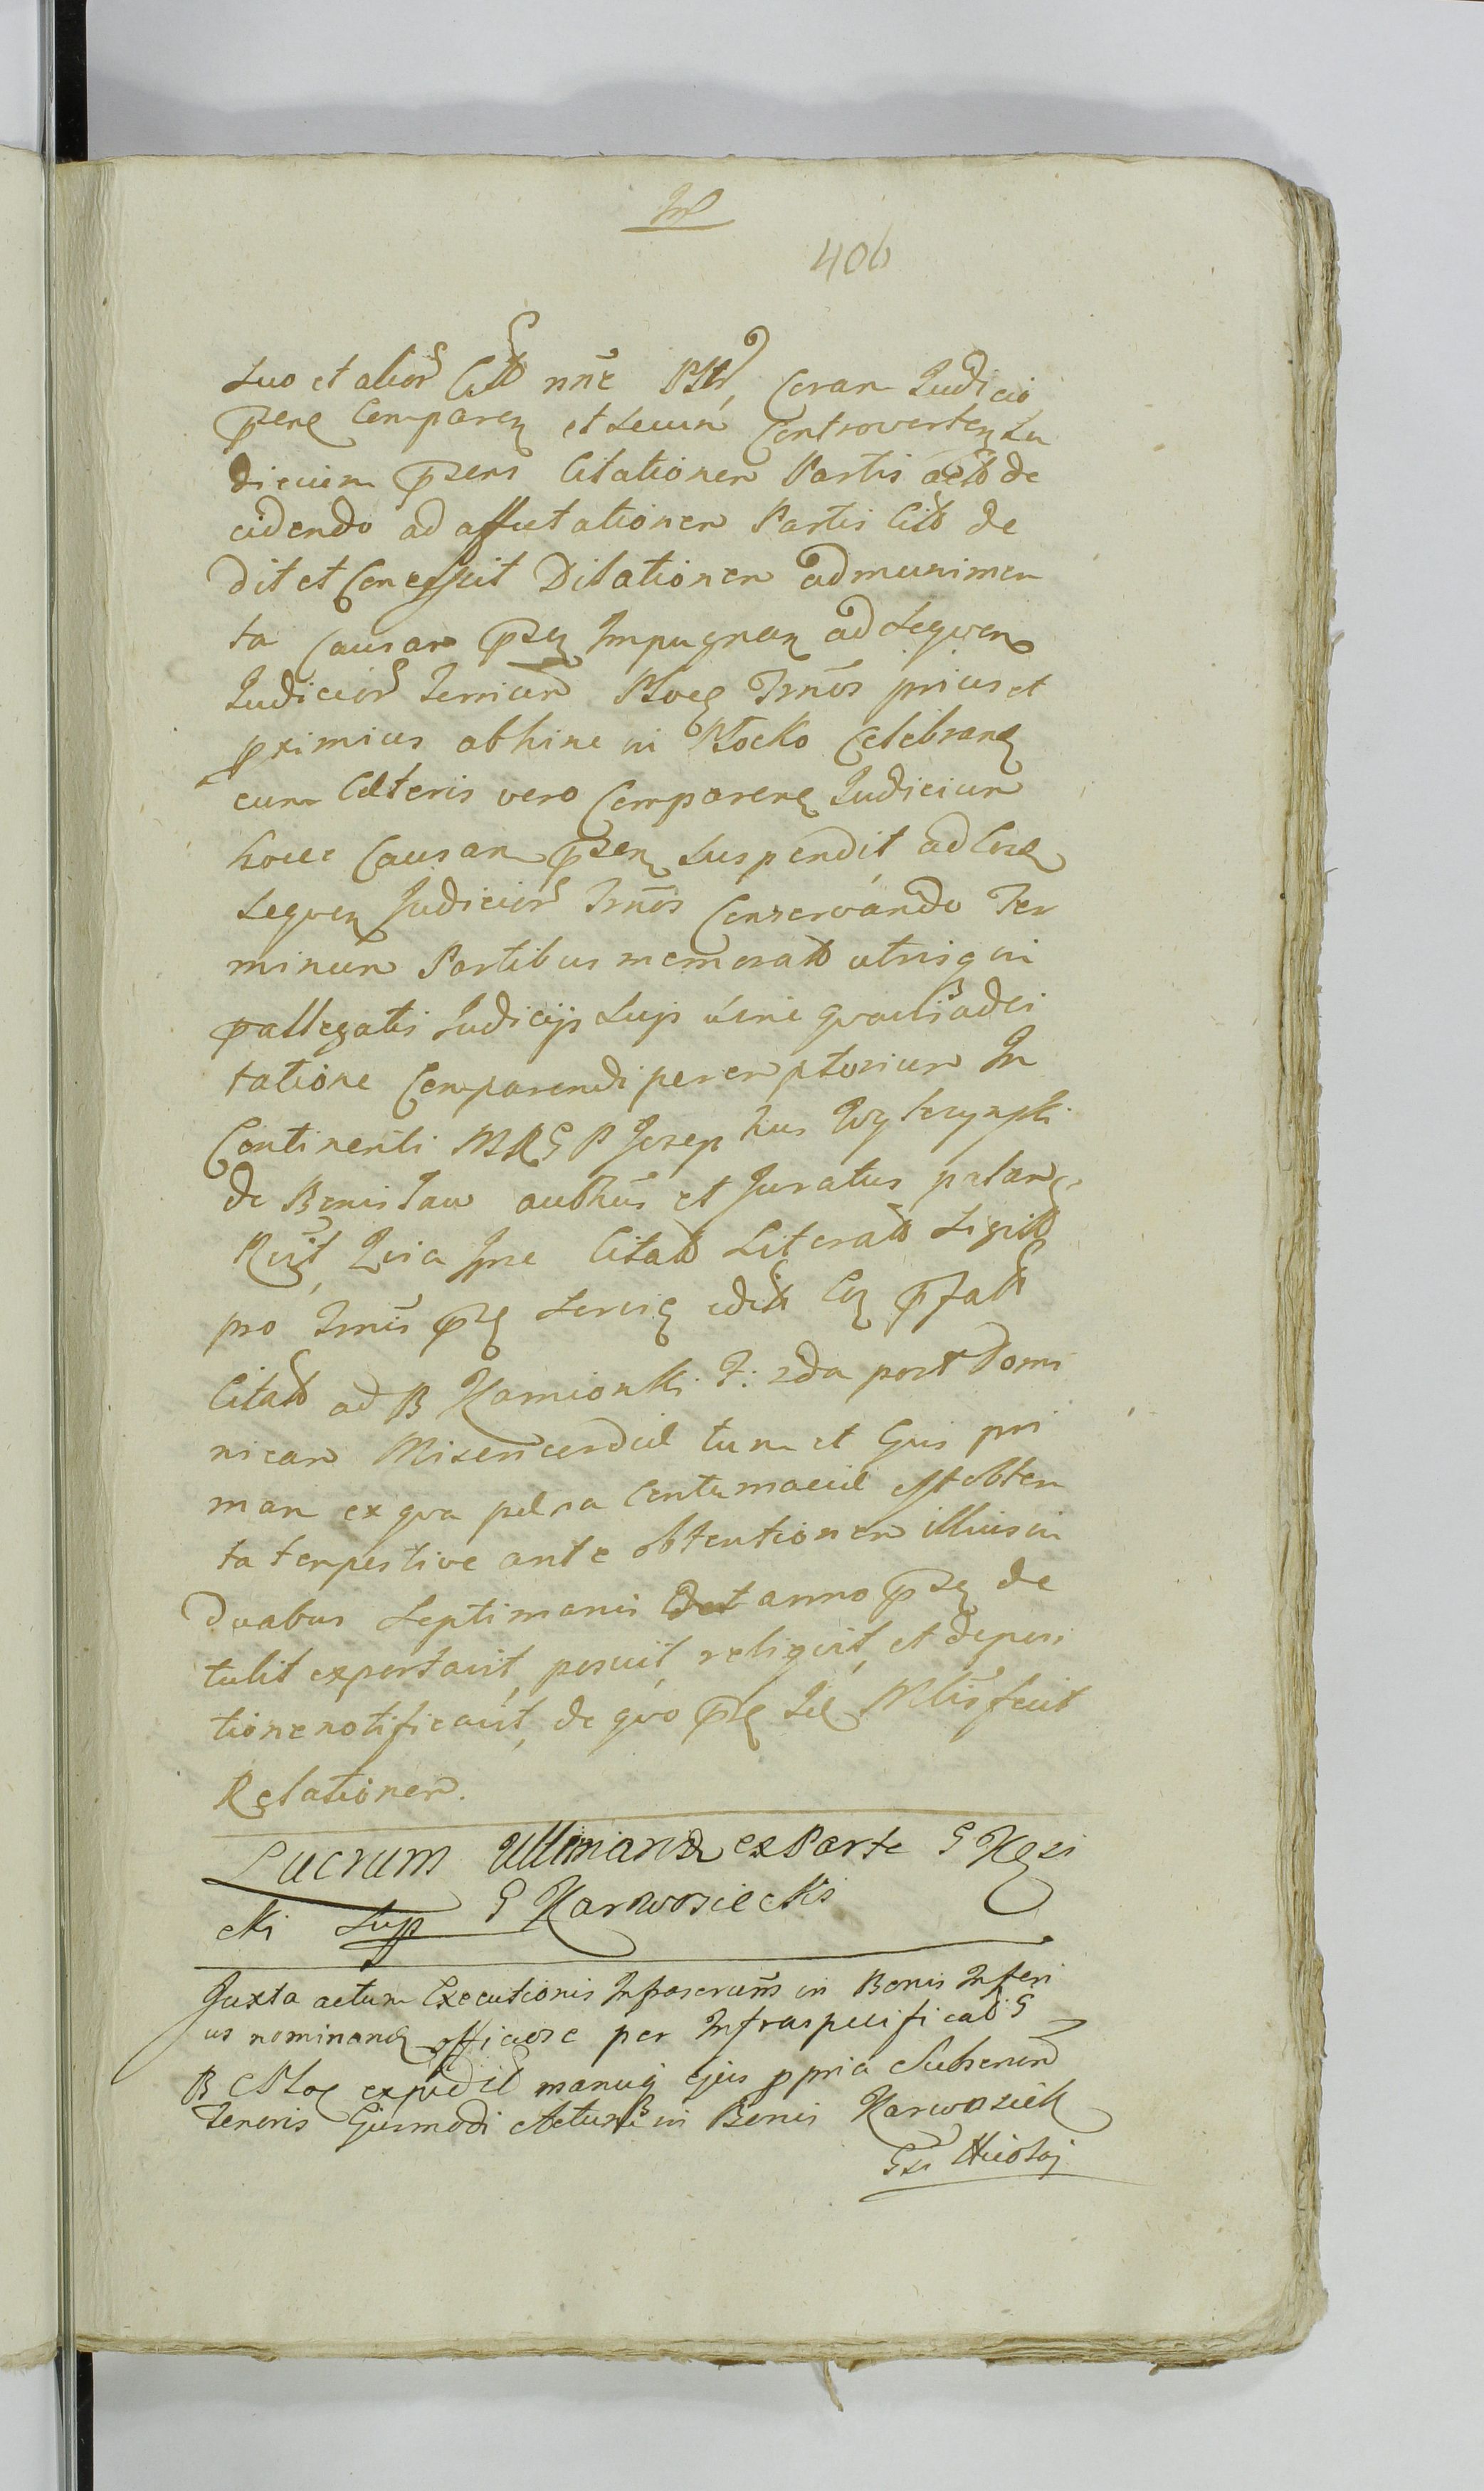 406
suo et alior Citt nne Pltt, Coram Judicio
psenę Comparen et secum Controverten Ju
dicium psens Citationem Partis actt de
cidendo ad affectationem Partis Citt de
dit et Concessit Dilationem ad munimen
ta Causam psen Impugnan ad sequen
Judicior Terrium Ploc Tmos prius et
pximius abhinc in Plocko Celebran
cum Cæteris vero Comparen Judicium
hocce Causam psen suspendit, ad Cosd
sequen Judicior Tmos Conservando Ter
minum Partibus memoratt utrisq in
pallegatis Judicijs sup
tatione Comparendi peremptorium In
Continenti MRG P Josephus
de Bonislaw authus et Juratus palam
Rvit, Quia Ipse Citatt Literatt
pro Tmis
Citatt ad B Kamionki F: 2da post Domi
nicam Misericordiæ tum et Ejus pri
mam ex qua pæna Contumaciæ est obten
ta tempestive ante obtentionem illius in
duabus septimanis anno pse de
tulit exportavit, posuit, reliquit, et deposi
tione notificavit, de quo Mtris fecit
Relationem.
Lucrum Ultimaria ex Parte G Kozi
cki Sup G Karwosieckis
Juxta actum Executionis Infrascrum in Bonis Inferi
us nominan officiose per Infraspecificatt G
B C Ploc expeditt manuq Ejus ppria Subscrum
Tenoris Ejusmodi Actum in Bonis Karwosiek
Gsi Nicolaj